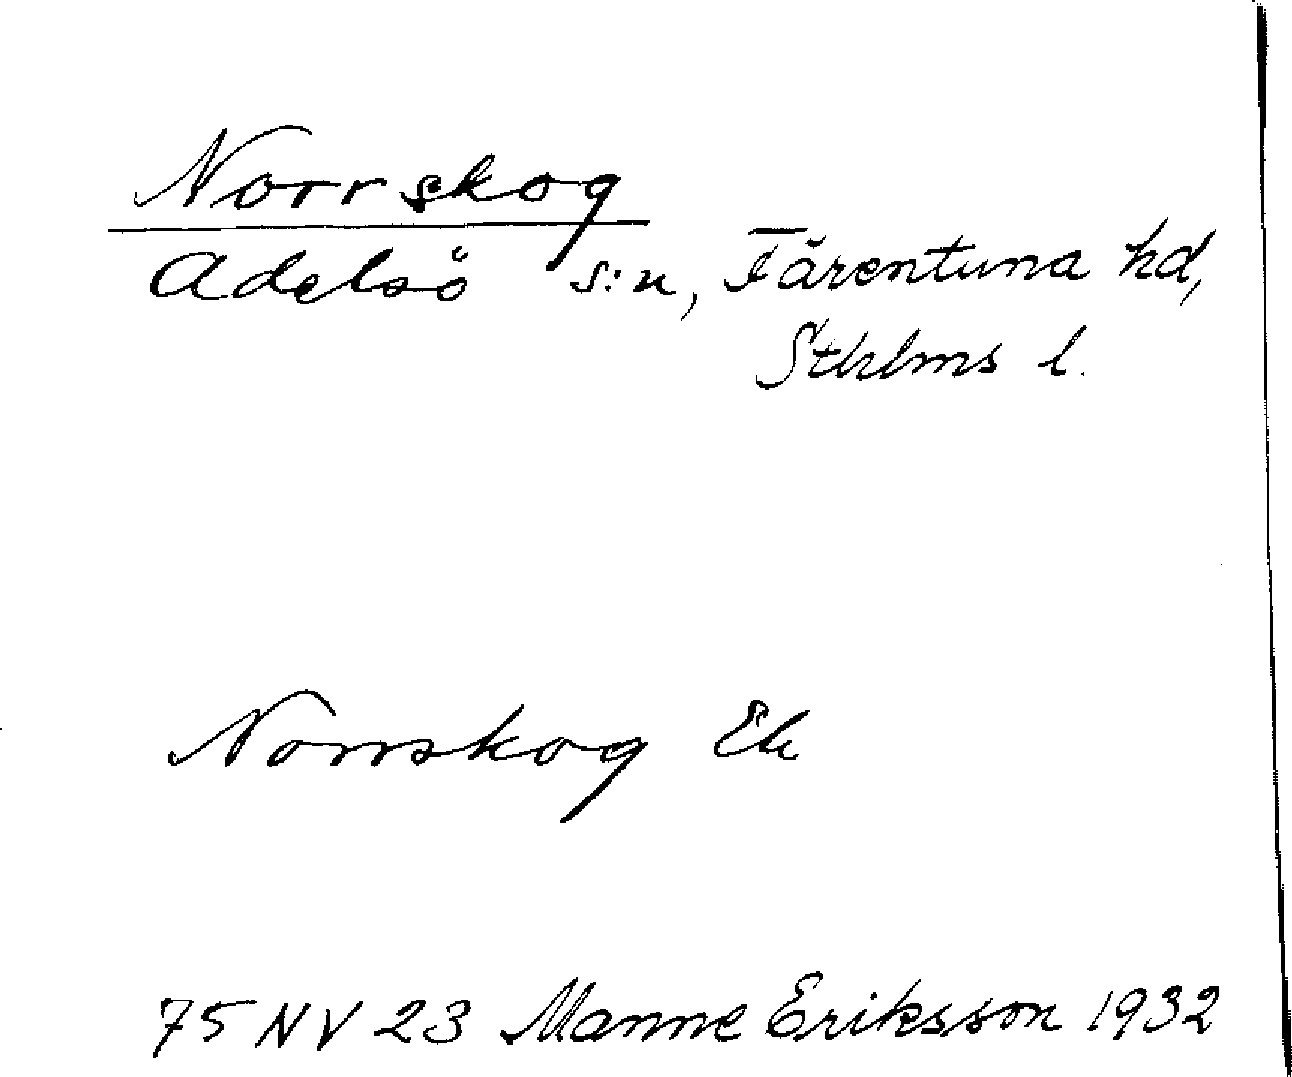 Norrskog
Adelsö s:n, Färentuna hd,
Sthlms l.
Norrskog Ek
75 NV 23 Manne Eriksson 1932